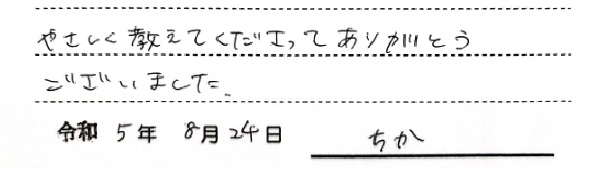 やさしく教えてくださってありがとう
ございました.
令和 5年 8月24日 ちか